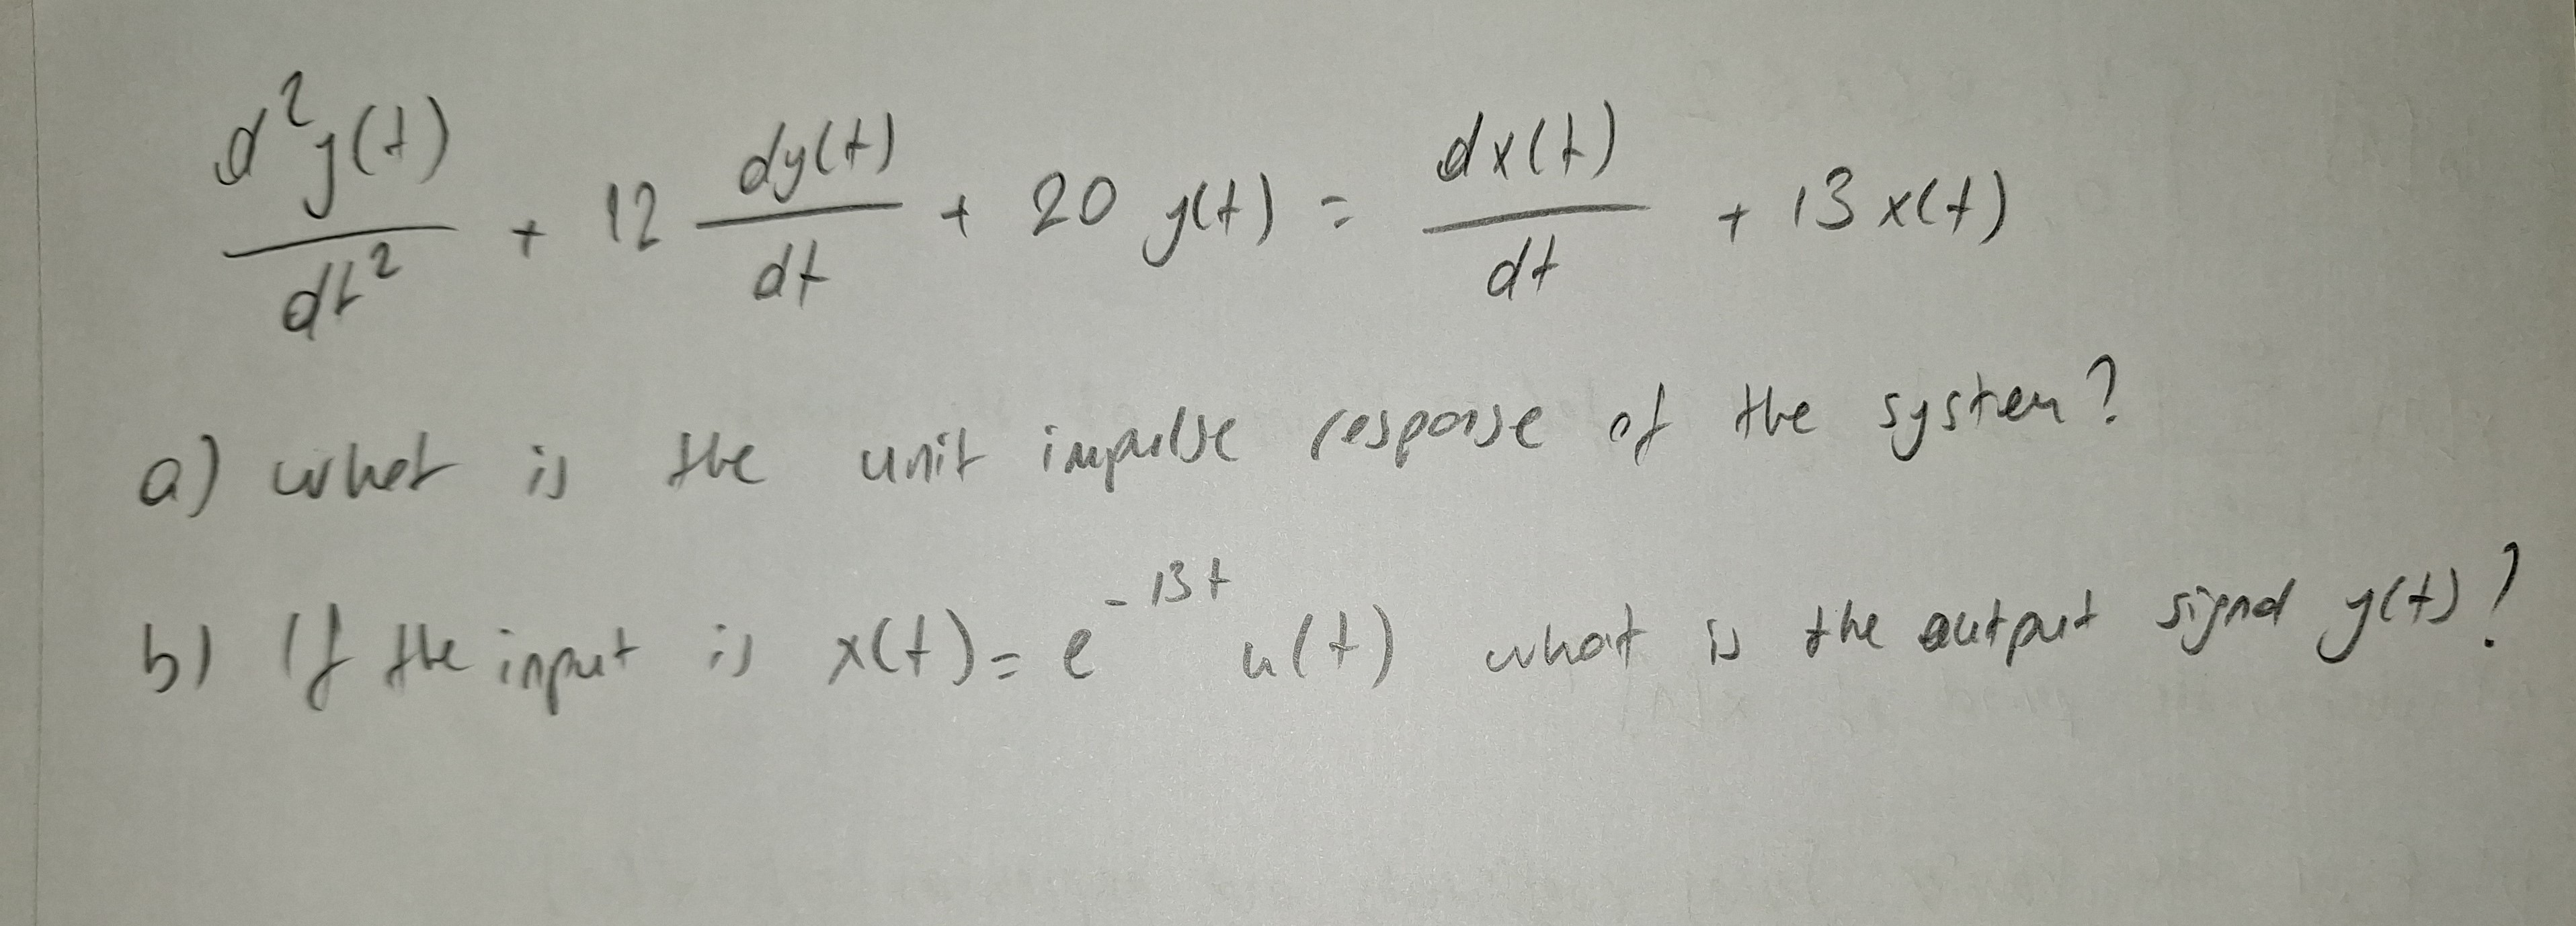 d²y(t)/dt² + 12 dy(t)/dt + 20 y(t) = dx(t)/dt + 13 x(t)
a) what is the unit impulse response of the system?
b) If the input is x(t) = e^-13t u(t) what is the output signal y(t)?